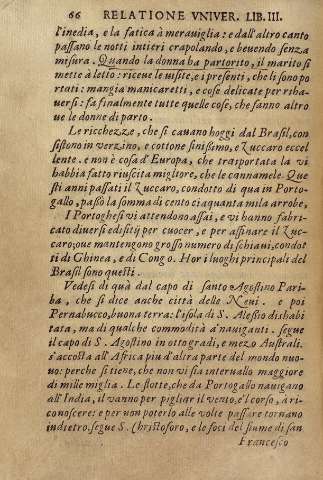 66 RELATIONE VNIVER. LIB. III.
l'inedia, e la fatica à merauiglia: e dall'altro canto
passano le notti intieri crapolando, e beuendo senza
misura. Quando la donna ha partorito, il marito si
mette à letto: riceue le uisite, e i presenti, che li sono por
tati: mangia manicaretti, e cose delicate per riha-
uersi: fa finalmente tutte quelle cose, che fanno altro
ue le donne di parto.
Le ricchezze, che si cauano hoggi dal Brasil, con
sistono in verzino, e cottone finissimo, e Zuccaro eccel
lente. e non è cosa d'Europa, che trasportata la vi
habbia fatto riuscita migliore, che le cannamele. Que
sti anni passati il Zuccaro, condotto di qua in Porto-
gallo, passò la somma di cento ciquanta mila arrobe,
I Portoghesi vi attendono assai, e vi hanno fabri-
cato diuersi edificij per cuocer, e per affinare il Zuc-
caro; oue mantengono grosso numero di schiaui, condot
ti di Ghinea, e di Congo. Hor i luoghi principali del
Brasil sono questi.
Vedesi di quà dal capo di santo Agostino Pari-
ba, che si dice anche città delle Neui. e poi
Pernabucco, buona terra: l'isola di S. Alessio dishabi
tata, ma di qualche commodità a' nauiganti. segue
il capo di S. Agostino in otto gradi, e mezo Australi.
s'accosta all'Africa piu d'altra parte del mondo nuo-
uo: perche si tiene, che non vi sia interuallo maggiore
di mille miglia. Le flotte, che da Portogallo nauigano
all'India, il vanno per pigliar il vento, e'l corso, à ri-
conoscere: e per non poterlo alle volte passare tornano
indietro. segue S. Christoforo, e le foci del fiume di san
Francesco